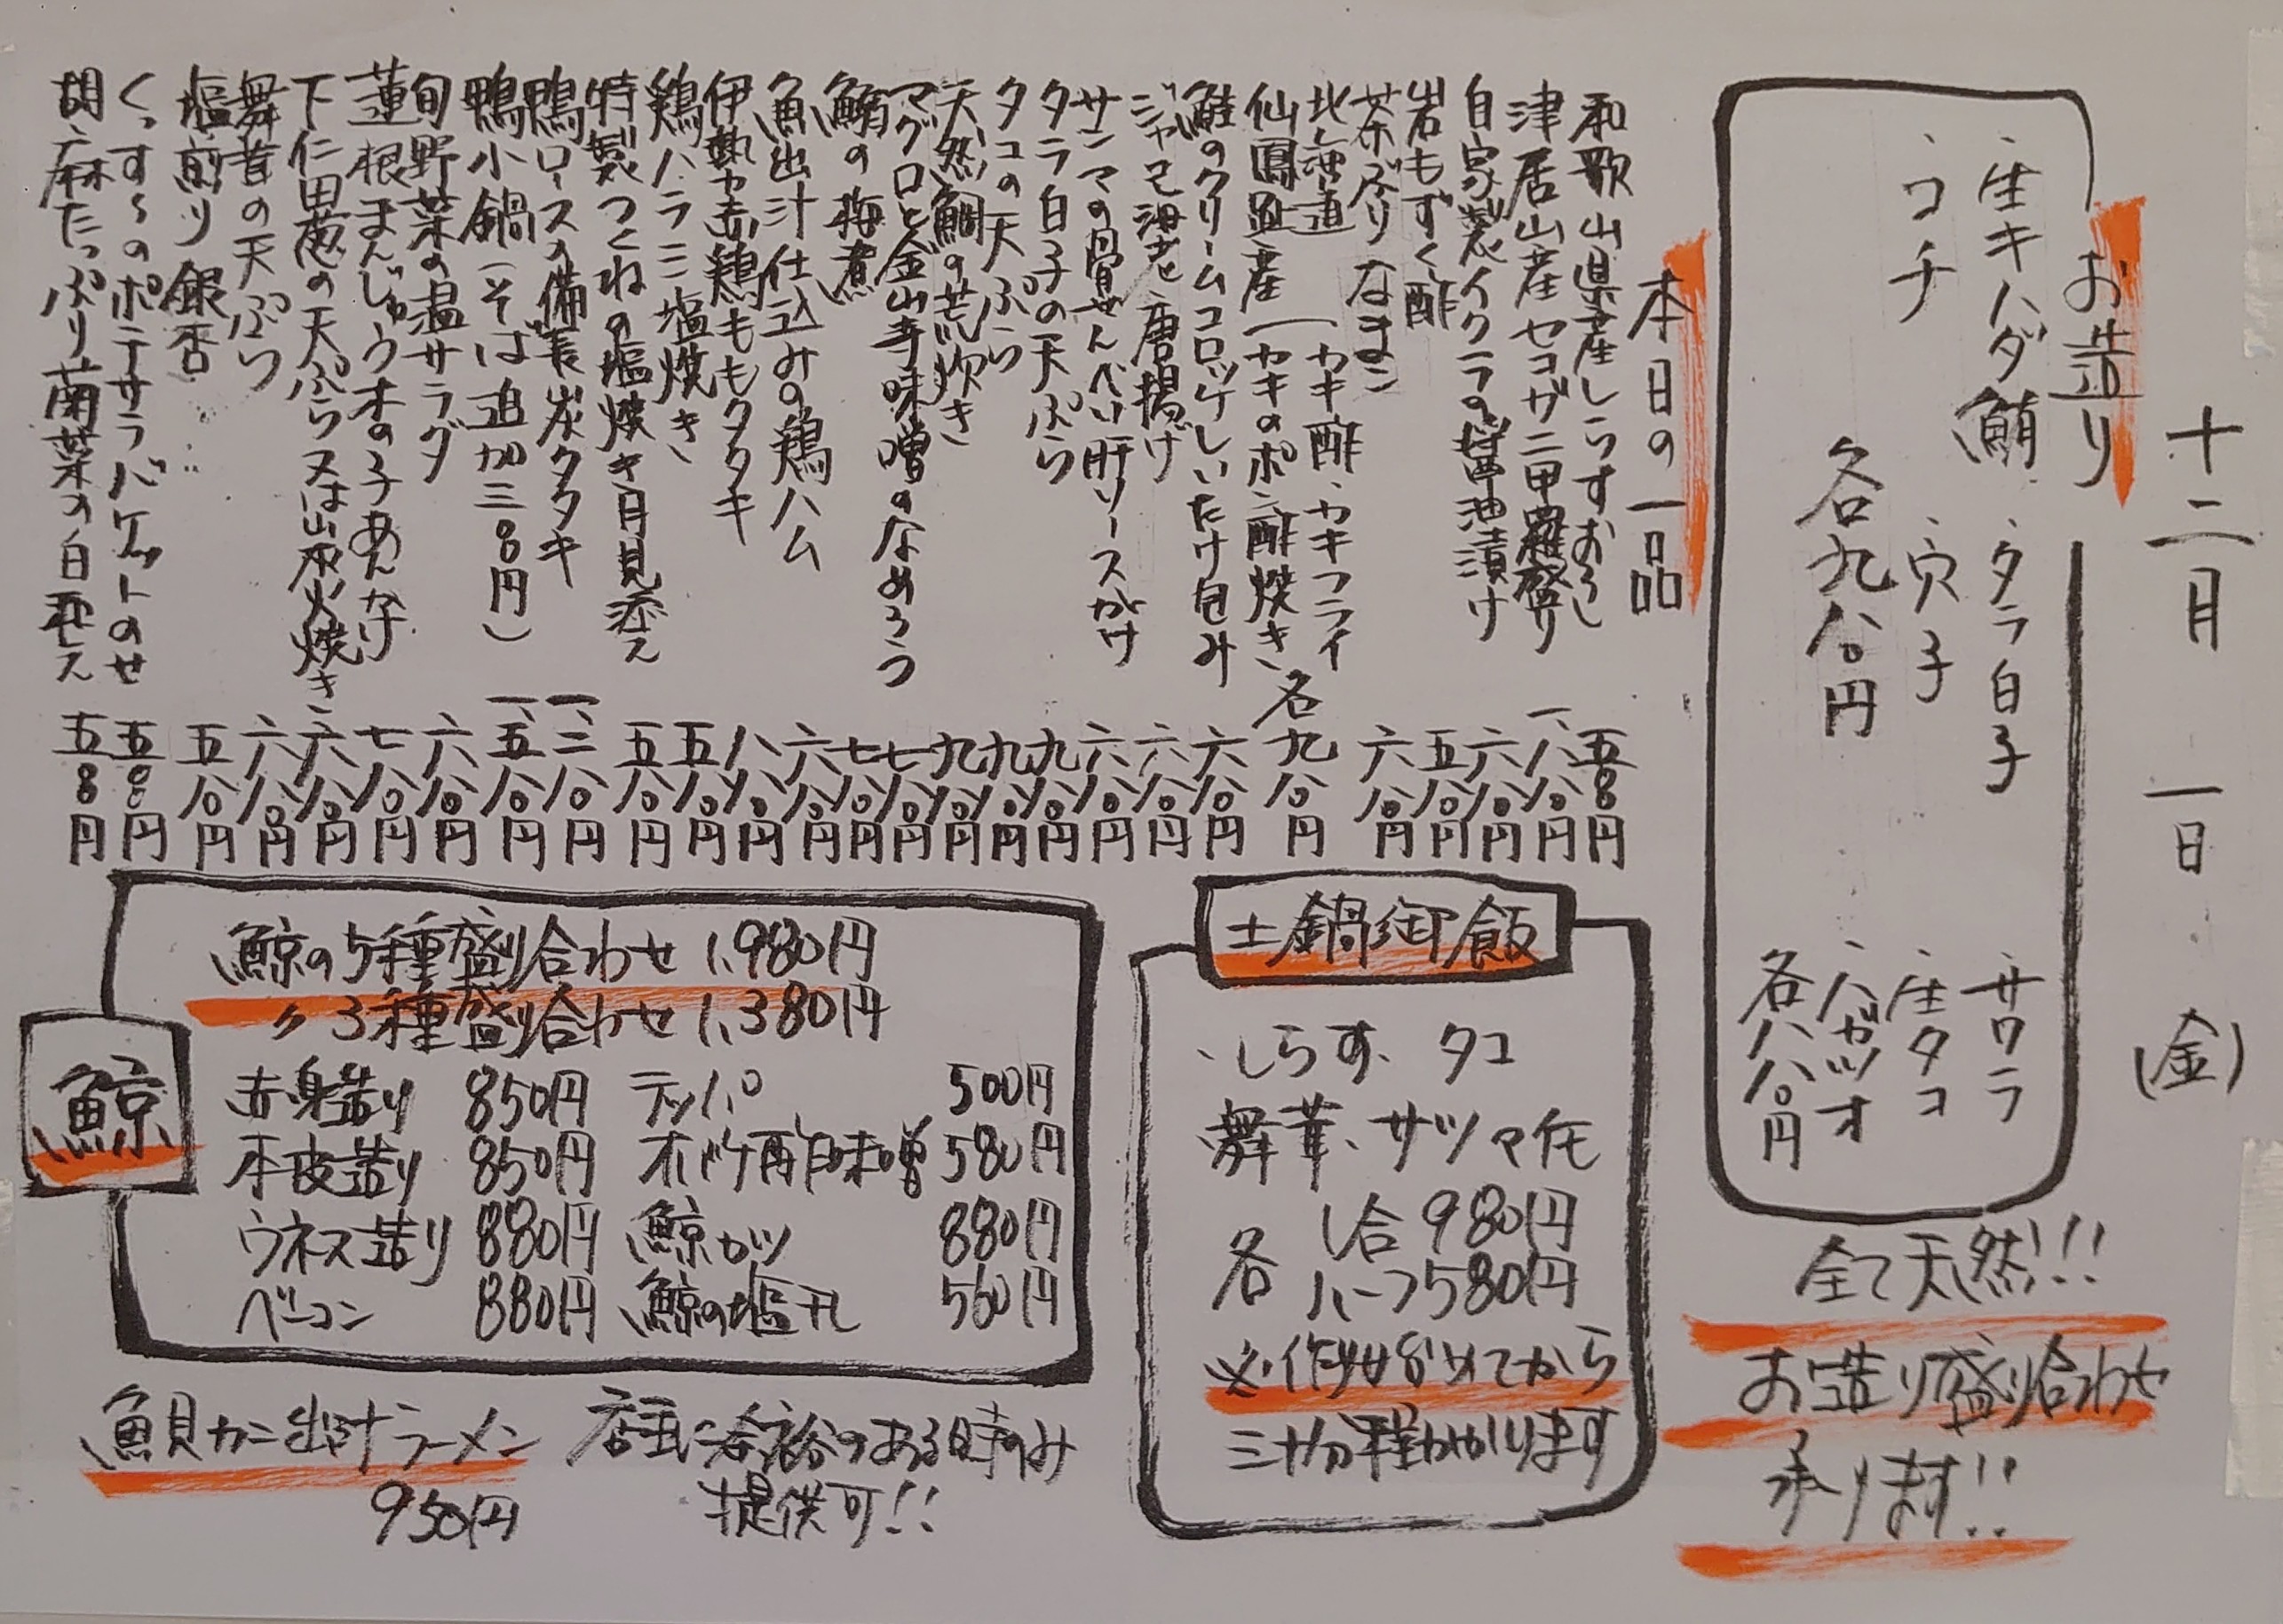 十二月 一日 (金)
お造り
・生キハダ鮪 ・タラ白子
・コチ ・穴子
各九八〇円
・サワラ
・生タコ
・ハガツオ
各八八〇円
全て天然!!
お造り盛り合わせ
承ります!!
本日の一品
和歌山県産しらすおろし 五〇〇円
津居山産セコガニ甲羅盛り 一、八八〇円
自家製イクラの醤油漬け 六八〇円
岩もずく酢 五八〇円
茶ぶりなまこ 六八〇円
北海道
仙鳳趾産(カキ酢、カキフライ
カキのポン酢焼き、各九八〇円
鮭のクリームコロッケしいたけ包み 六八〇円
ジャコ海老唐揚げ 六八〇円
サンマの骨せんべい肝ソースがけ 六八〇円
タラ白子の天ぷら 九八〇円
タコの天ぷら 九八〇円
天然鯛の荒炊き 九八〇円
マグロと金山寺味噌のなめろう 七八〇円
鮪の梅煮 七八〇円
魚出汁仕込みの鶏ハム 六八〇円
伊勢赤鶏ももタタキ 八八〇円
鶏ハラミ塩焼き 五八〇円
特製つくねの塩焼き月見添え 五八〇円
鴨ロースの備長炭タタキ 一、二八〇円
鴨小鍋(そば追加三〇〇円) 一、五八〇円
旬野菜の温サラダ 六八〇円
蓮根まんじゅう木の子あんかけ 七八〇円
下仁田葱の天ぷら又は炭火焼き 六八〇円
舞茸の天ぷら 六八〇円
塩煎り銀杏 五八〇円
くっす〜のポテサラバゲットのせ 五〇〇円
胡麻たっぷり菊菜の白和え 五〇〇円
土鍋御飯
・しらす、タコ
舞茸、サツマ芋
各 1合 980円
ハーフ580円
※作り始めてから
三十分程かかります
鯨
鯨の5種盛り合わせ 1,980円
〃 3種盛り合わせ 1,380円
赤身造り 850円 テッパ 500円
本皮造り 850円 オバケ酢味噌 580円
ウネス造り 880円 鯨カツ 880円
ベーコン 880円 鯨の塩干し 550円
魚貝カニ出汁ラーメン
950円
店主に余裕のある時のみ
提供可!!